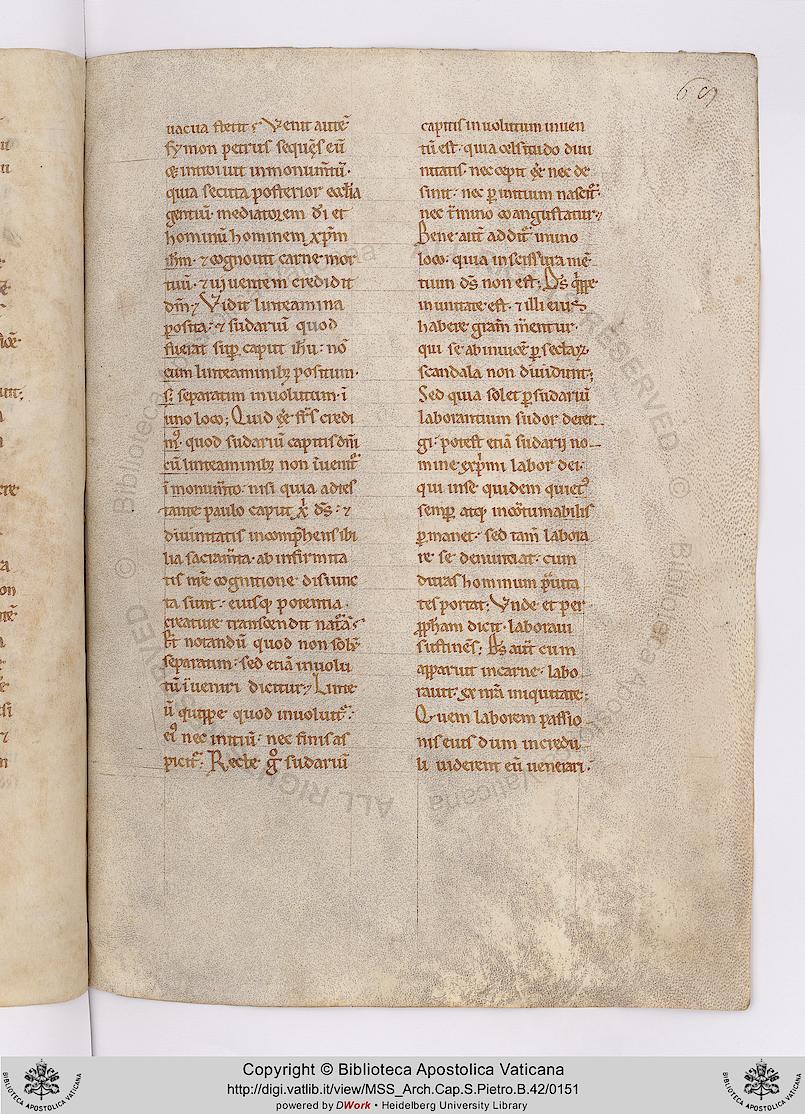 69
uacua stetit; Venit aute᷒
symon petrus sequēs eū
⁊ introiuit in monumtū.
quia secuta posterior eccl̄ia
gentiū. mediatorem dī et
hominū hominem xp̄m
ih̄m. ⁊ cognouit carne mor
tuū. ⁊ uiuentem credidit
dm̄; Vidit linteamina
posita. ⁊ sudariū quod
fuerat sup caput ih̄u. nō
cum linteaminibꝫ positum.
sꝫ separatim inuolutum. ī
uno loco; Quid ē fr̄s credi
mꝰ. quod sudariū capitis dn̄i
cū linteaminibꝫ non īuenit᷑
ī monumto. nisi quia adtes
tante paulo caput x̄ ds̄. ⁊
diuinitatis incomphensibi
lia sacram̄ta. ab infirmita
tis nr̄e cognitione disiunc
ta sunt. eiusqꝫ potentia.
creature transcendit nat᷑ā;
Et notandū quod non solū
separatim. sed etiā inuolu
tū īueniri dicitur; Linte
ū quippe quod inuoluit᷑.
eiꝰ nec initiū. nec finis as
picit᷑. Recte gͦ sudariū
capitis inuolutum inuen
tū est. quia celsitudo diui
nitatis. nec cepit ēē nec de
sinit. nec p initium nascit᷑.
nec t̄mino coangustatur;
Bene aut̄ addit᷑ in uno
loco. quia in scissura mē
tium ds̄ non est; Ds̄ q̄ppe
in unitate est. ⁊ illi eius
habere gr̄am m̄entur.
qui se ab inuicē p sectaꝝ.
scandala non diuidunt;
Sed quia solet p sudariū
laborantium sudor deter
gi. potest etiā sudarii no
mine exp̄mi labor dei.
qui in se quidem quietꝰ
semp atqꝫ incōmutabilis
pmanet. sed tam̄ labora
re se denuntiat. cum
duras hominum p̄uita
tes portat; Vnde et per
pp̄ham dicit. laboraui
sustinēs; Ds̄ aut̄ cum
apparuit in carne. labo
rauit. ex nr̄a iniquitate;
Quem laborem passio
nis eius dum incredu
li uiderent eū uenerari.
© Biblioteca Apostolica Vaticana
ALL RIGHTS RESERVED
Copyright © Biblioteca Apostolica Vaticana
http://digi.vatlib.it/view/MSS_Arch.Cap.S.Pietro.B.42/0151
powered by DWork • Heidelberg University Library
BIBLIOTECA APOSTOLICA VATICANA
BIBLIOTECA APOSTOLICA VATICANA